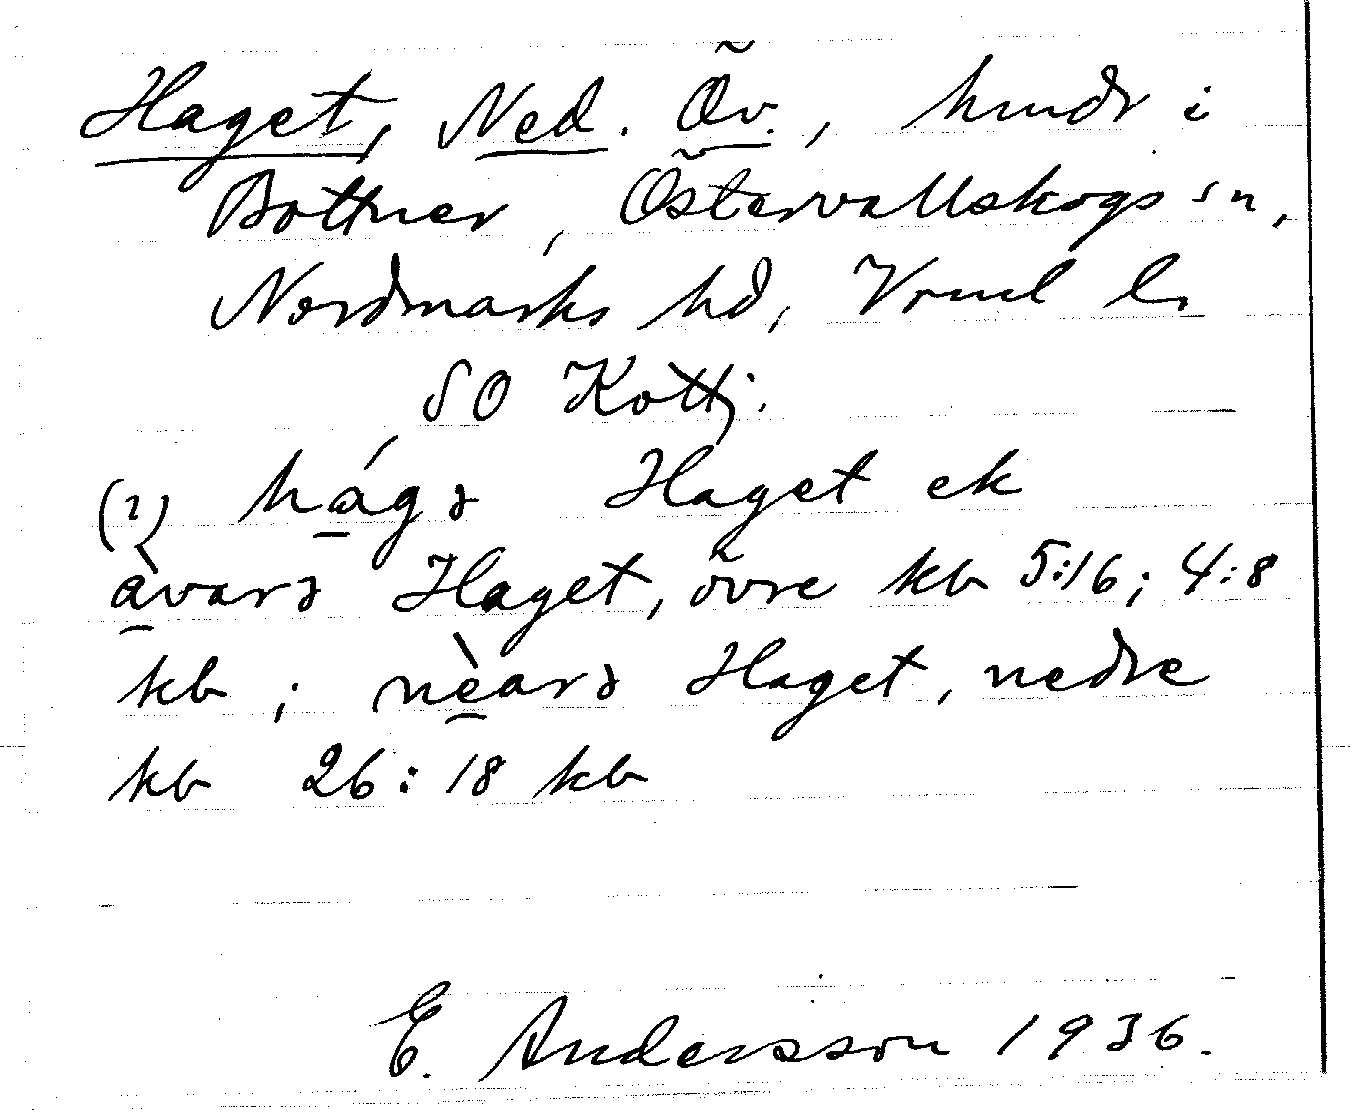 Haget, Ned. Öv., hmdr i
Bottner, Östervallskogs sn,
Nordmarks hd, Vrml l.
SO Kottj.
(i) hágɘ Haget ek
àvarɘ Haget, övre kb 5:16; 4:8
kb; nèarɘ Haget, nedre
kb 26:18 kb
E. Andersson 1936.